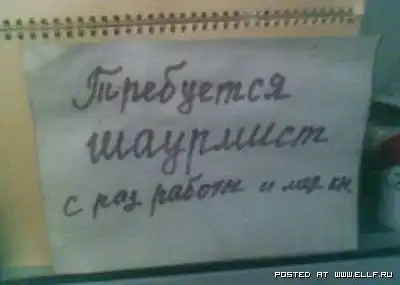 Требуется
шаурмист
с раз работы и мед кн.
POSTED AT WWW.ELLF.RU